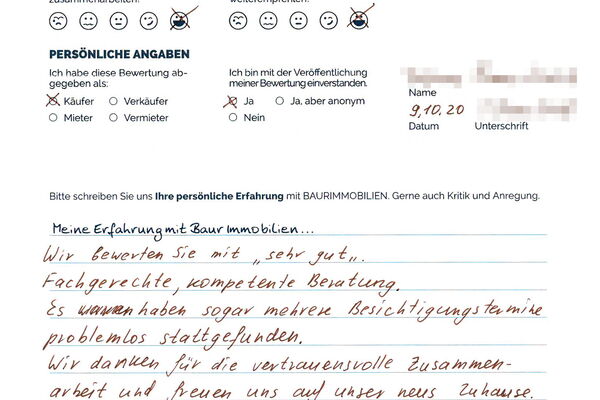 zusammenarbeiten? weiterempfehlen?
PERSÖNLICHE ANGABEN
Ich habe diese Bewertung ab-
gegeben als:
Käufer Verkäufer
Mieter Vermieter
Ich bin mit der Veröffentlichung
meiner Bewertung einverstanden.
Ja Ja, aber anonym
Nein
Name
9,10.20
Datum Unterschrift
Bitte schreiben Sie uns Ihre persönliche Erfahrung mit BAURIMMOBILIEN. Gerne auch Kritik und Anregung.
Meine Erfahrung mit Baur Immobilien...
Wir bewerten Sie mit „sehr gut".
Fachgerechte, kompetente Beratung.
Es haben sogar mehrere Besichtigungstermine
problemlos stattgefunden.
Wir danken für die vertrauensvolle Zusammen-
arbeit und freuen uns auf unser neus Zuhause.